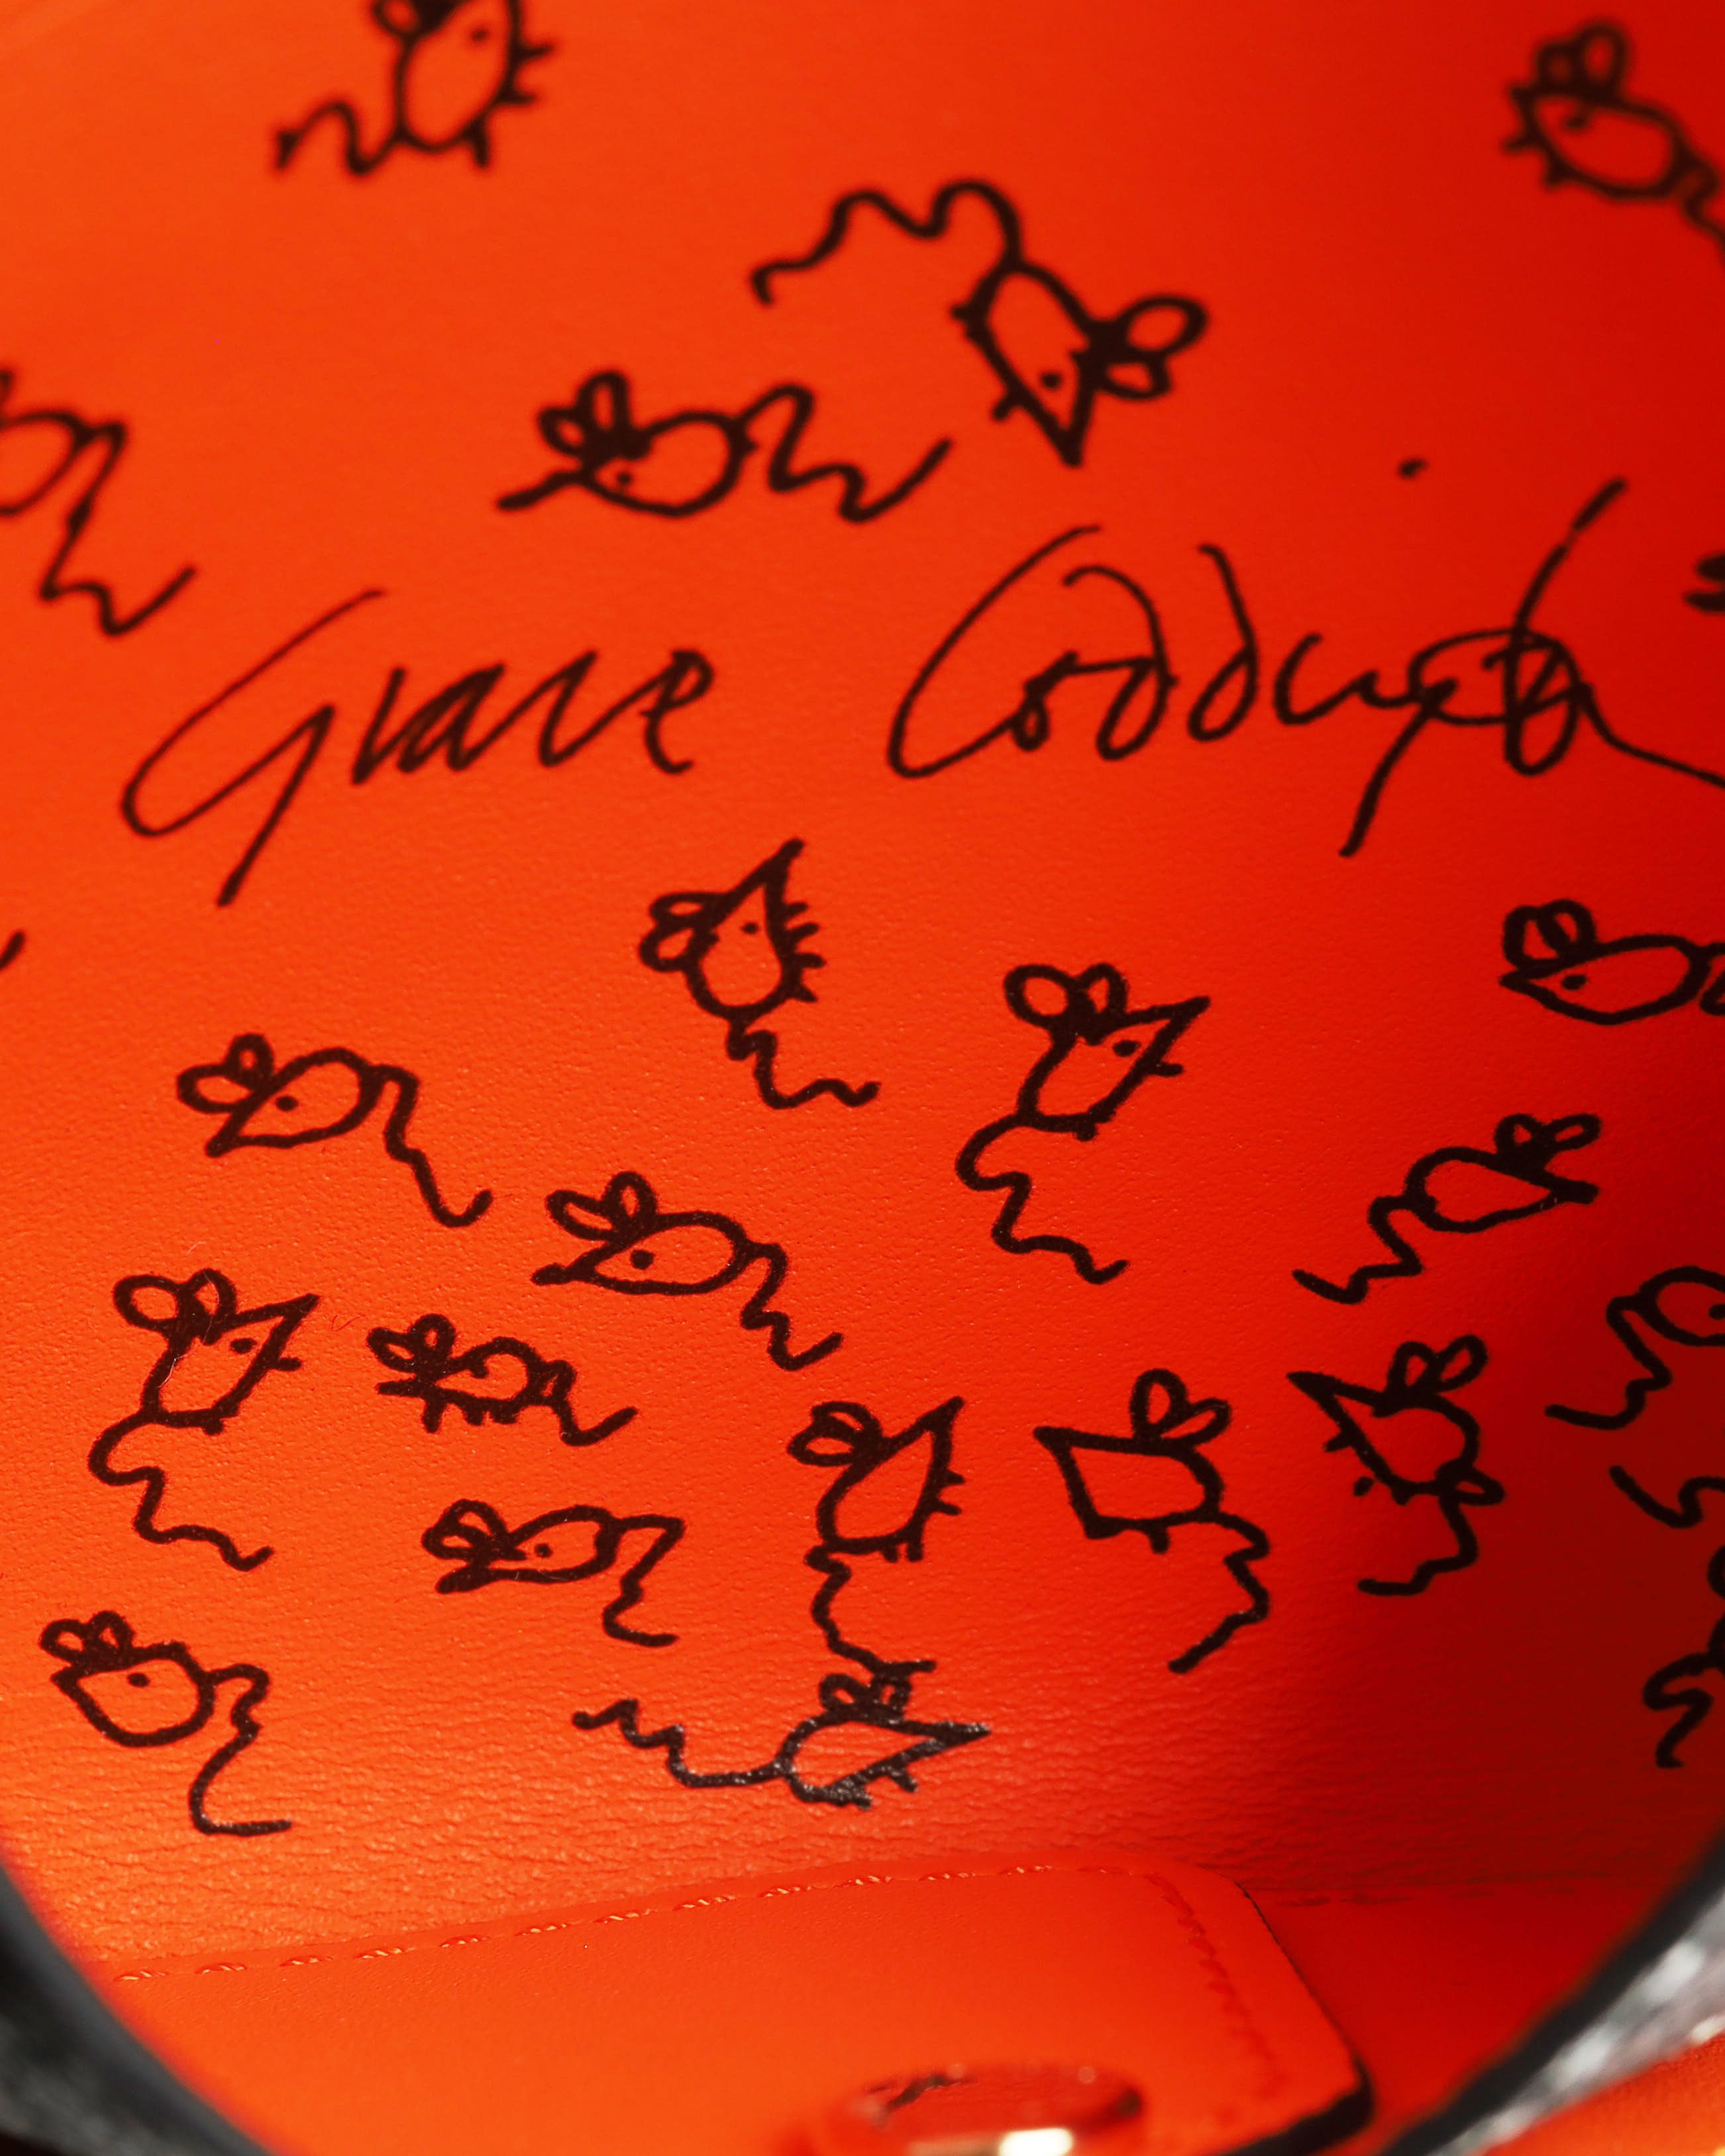 Grace Coddington